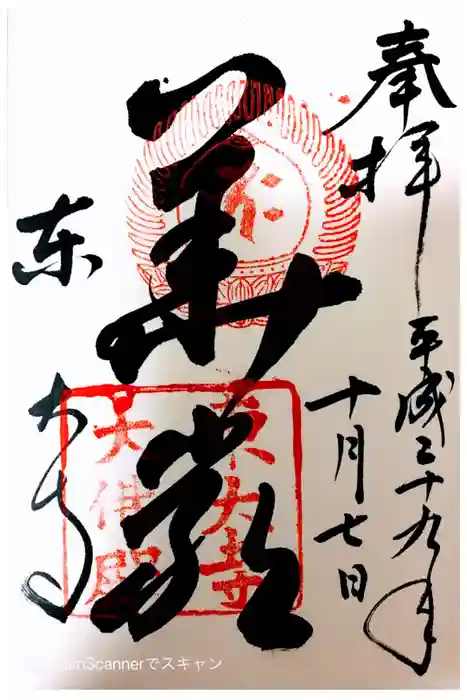 奉拝
平成二十九年
十月七日
華厳
東大寺
東大寺
大佛殿
CamScannerでスキャン